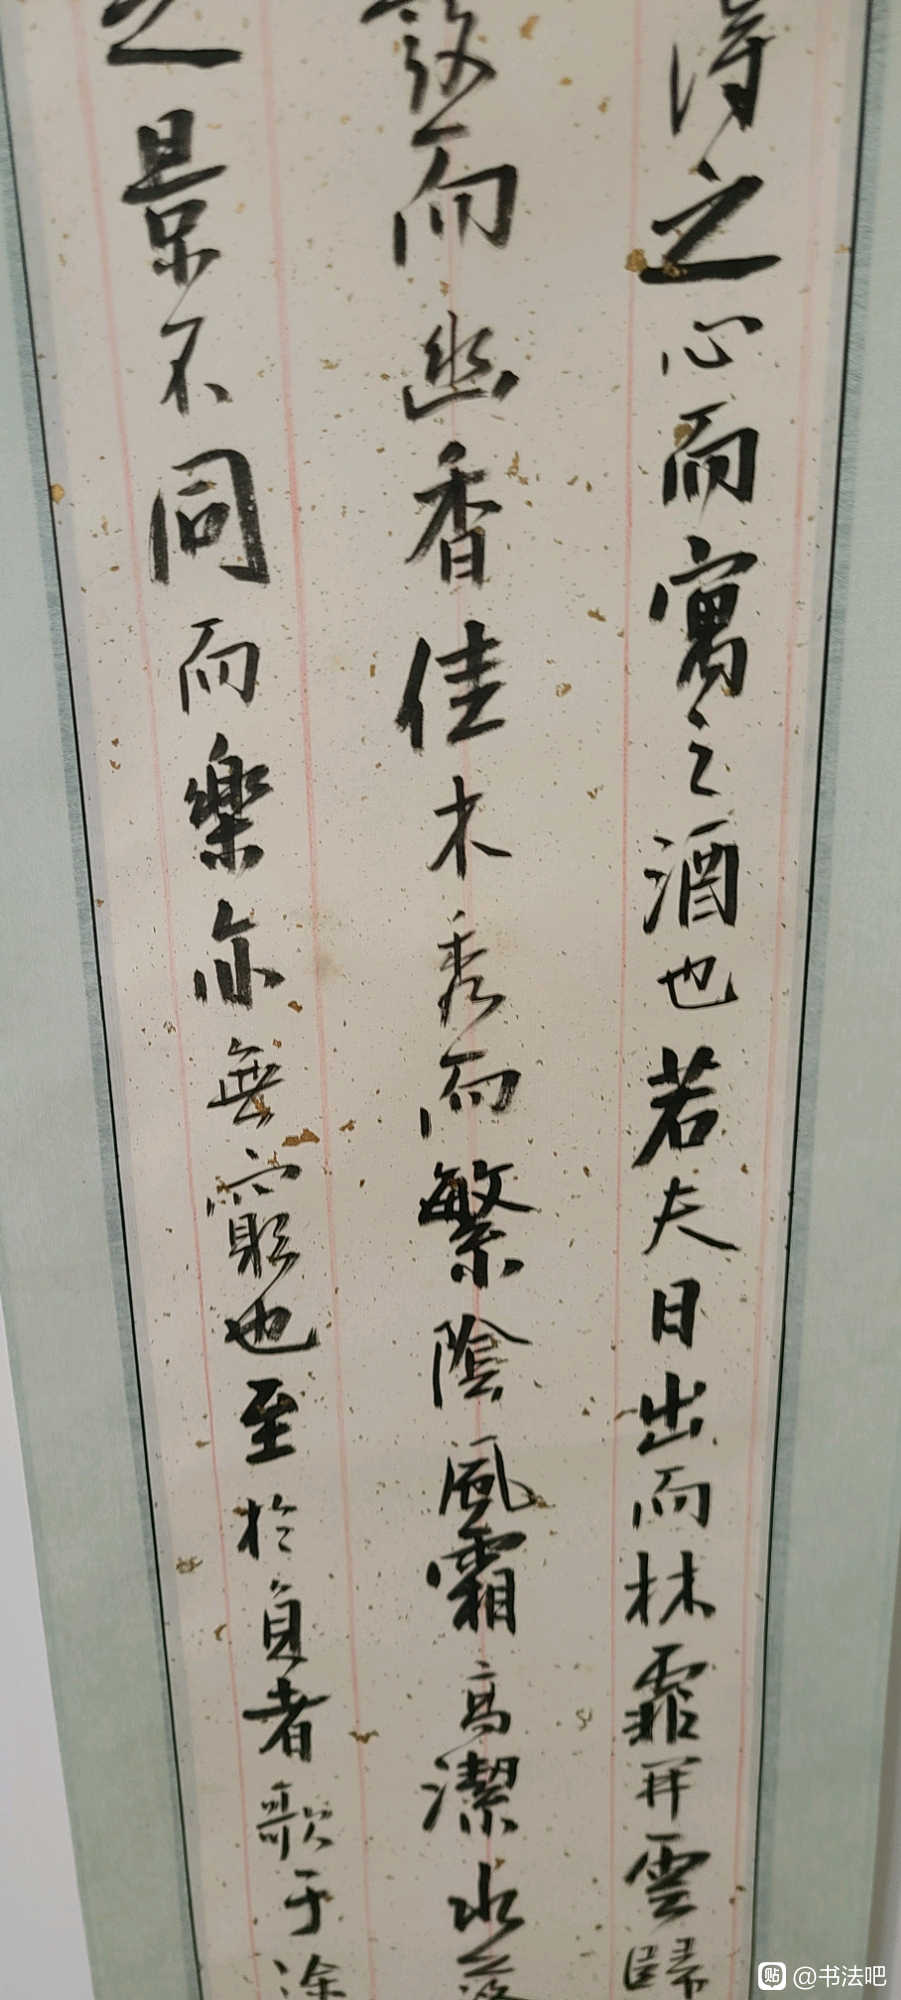 得之心而寓之酒也若夫日出而林霏開雲歸
發而幽香佳木秀而繁陰風霜高潔水落
之景不同而樂亦無窮也至於負者歌于塗
@书法吧